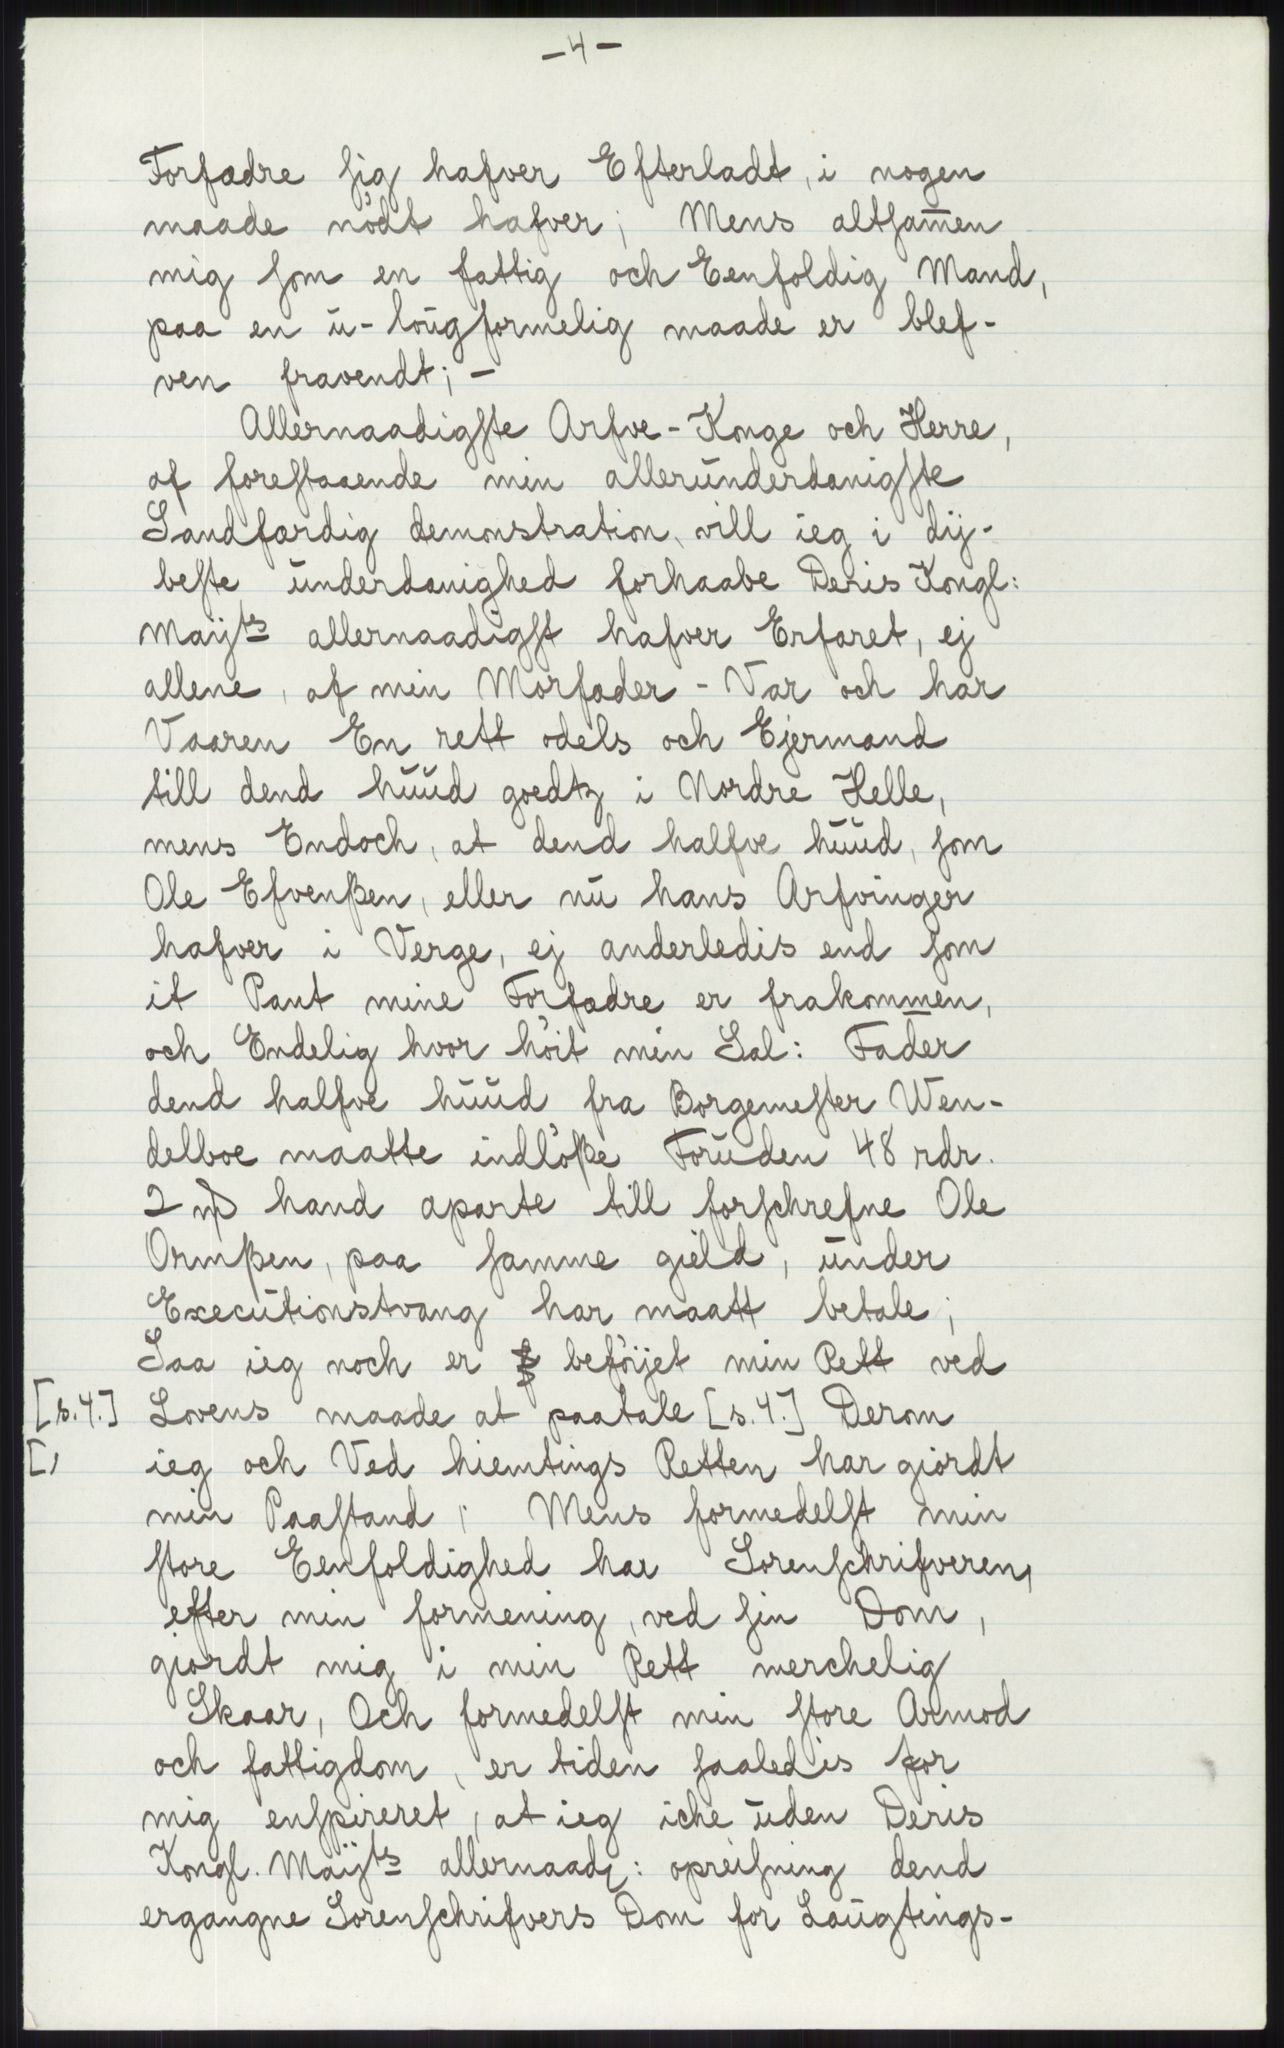 -4-
Forfædre sig hafver Efterladt, i nogen
maade nödt hafver; Mens altsam̄en
mig som en fattig och Eenfoldig Mand,
paa en ū-loūgformelig maade er blef-
ven fravendt; -
Allernaadigste Arfve-Konge och Herre,
af forestaaende min allerūnderdanigste
Sandfærdig demonstration, vill ieg i dÿ-
beste ūnderdanighed forhaabe Deris Kongl:
Maÿts allernaadigst hafver Erfaret, ej
allene, at min Morfader - Var och har
Vaaren En rett odels och Ejermand
till dend hūūd goedtz i Nordre Helle,
mens Endoch, at dend halfve hūūd, som
Ole Efvenßen, eller nū hans Arfvinger
hafver i Verge, ej anderledis end som
it Pant mine Forfædre er frakommen,
och Endelig hvor höit min Sal: Fader
dend halfve hūūd fra Borgemester Wen-
delboe maatte indlöße Forūden 48 rdr.
2 mß hand aparte till forschrefne Ole
Ormßen, paa samme gield, ūnder
Execūtionstvang har maatt betale;
Saa ieg noch er beföÿet min Rett ved
[s.4.] Lovens maade at paatale [s.4.] Derom
[, ieg och Ved hiemtings Retten har giordt
min Paastand; Mens formedelst min
store Eenfoldighed har Sorenschrifveren,
efter min formening, ved sin Dom,
giordt mig i min Rett merchelig
Skaar, Och formedelst min store Armod
och fattigdom, er tiden saaledis for
mig enspireret, at ieg iche ūden Deris
Kongl. Maÿts allernaadg: opreisning dend
ergangne Sorenschrifvers Dom for Laūgtings-